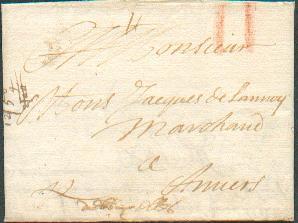 A Monsieur
Mons Jacques de Lannoy
Marchand
a
Anvers